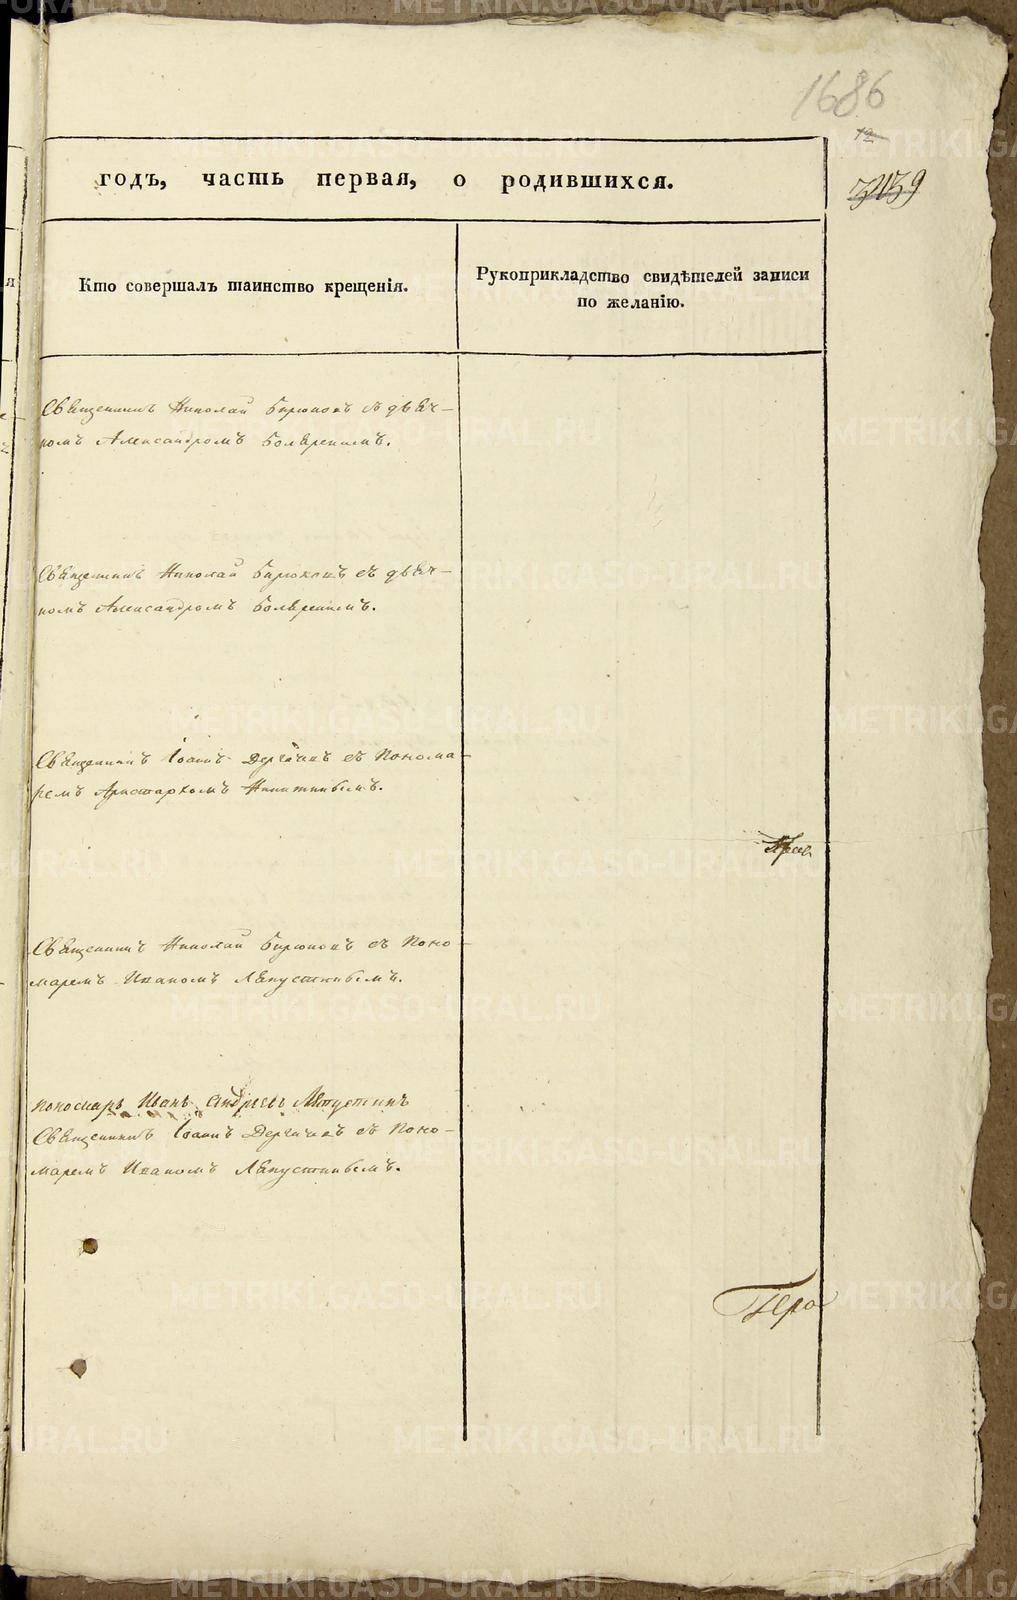 1686
12
3439
годъ, часть первая, о родившихся.
Кто совершалъ таинство крещенія.
Рукоприкладство свидѣтелей записи
по желанію.
Священникъ Николай Бирюковъ съ дьяч-
комъ Александромъ Боляренимъ.
Священникъ Николай Бирюковъ съ дьяч-
комъ Александромъ Боляренимъ.
Священникъ Іоаннъ Дергачевъ съ понома-
ремъ Аристархомъ Никитинымъ.
Священникъ Николай Бирюковъ съ поно-
маремъ Иваномъ Ляпустинымъ.
пономарь Иванъ Андреевъ Ляпустинъ
Священникъ Іоаннъ Дергачевъ съ поно-
маремъ Иваномъ Ляпустинымъ.
METRIKI.GASO-URAL.RU